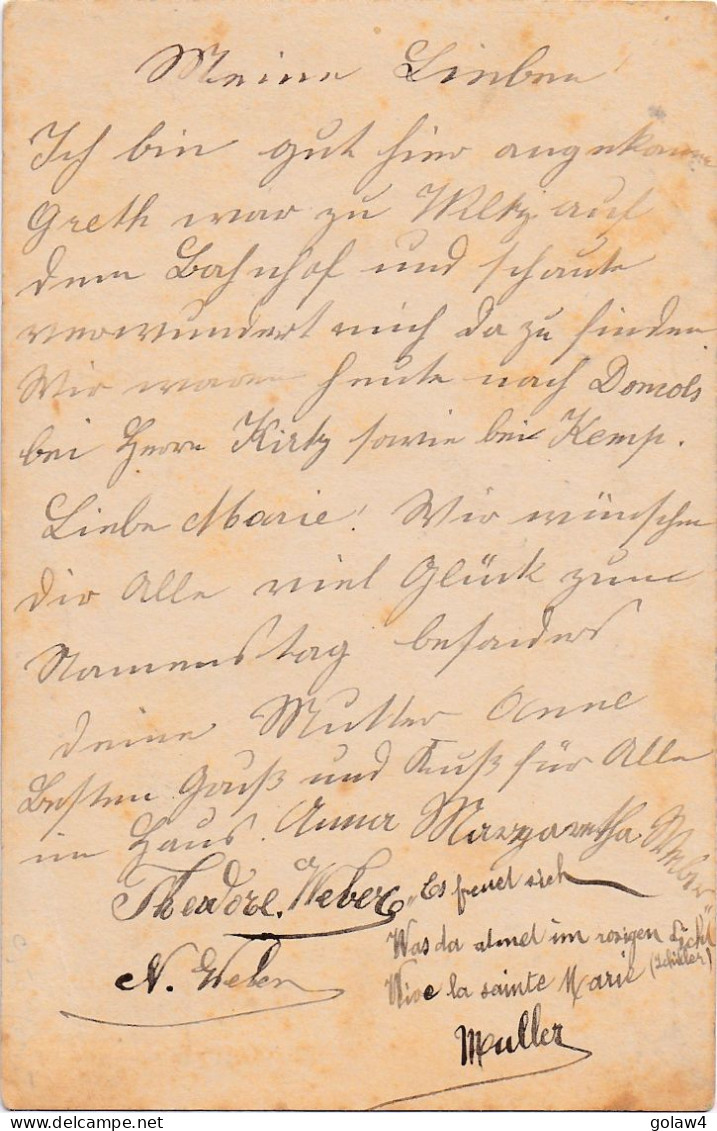 Meine Lieben!
Ich bin gut hier angekomme
Greth war zu Wiltz auf
dem Bahnhof und schaute
verwundert mich da zu finden
Wir waren heute nach Domols
bei Herrn Kirtz sowie bei Kemp.
Liebe Marie! Wir wünschen
dir Alle viel Glück zum
Namenstag besonders
deine Mutter Anne
Besten Gruß und Kuß für Alle
im Haus. Anna Margaretha Weber
Theodore. Weber
„Es freuet sich
Was da atmet im rosigen Licht"
(Schiller)
Vive la sainte Marie
N. Weber
Muller
golaw4